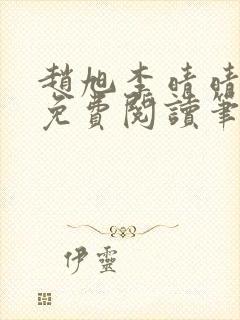 趙旭李晴晴
免費閱讀筆
伊靈